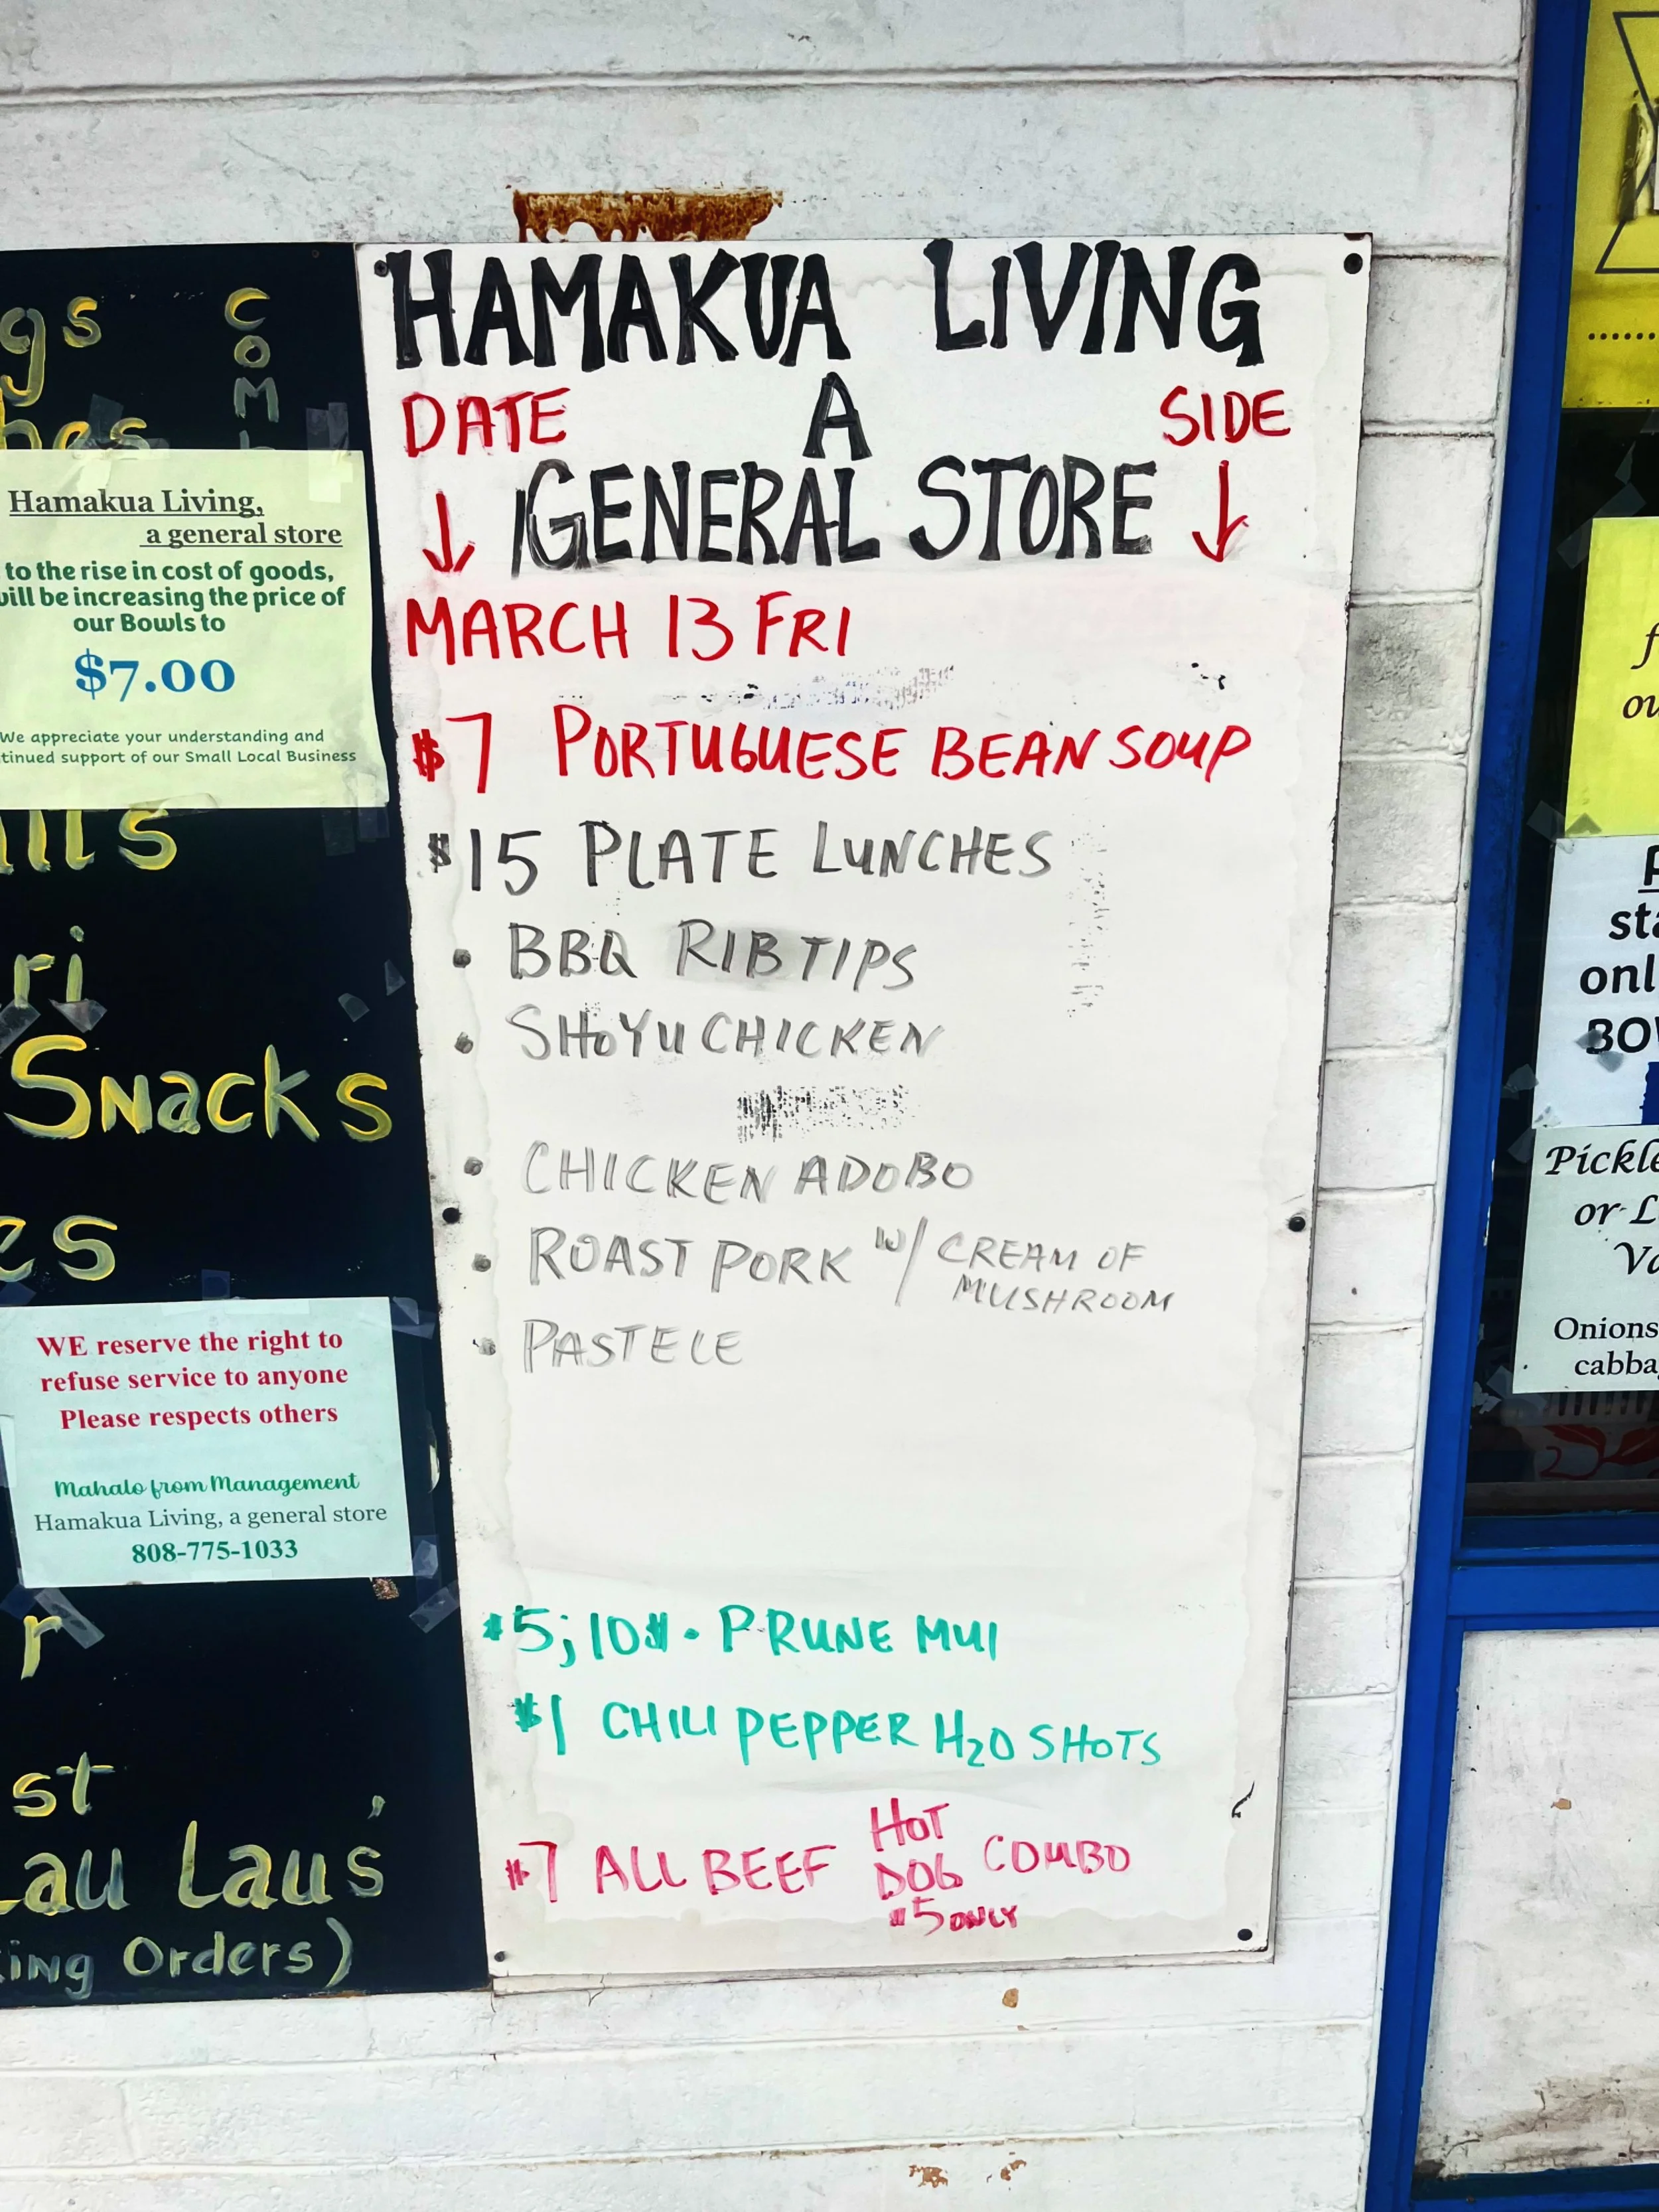 HAMAKUA LIVING
DATE A SIDE
GENERAL STORE
MARCH 13 FRI
$7 PORTUGUESE BEAN SOUP
$15 PLATE LUNCHES
• BBQ RIB TIPS
• SHOYU CHICKEN
• CHICKEN ADOBO
• ROAST PORK W/ CREAM OF
MUSHROOM
• PASTELE
$5; 10$ • PRUNE MUI
$1 CHILI PEPPER H2O SHOTS
$7 ALL BEEF HOT DOG COMBO
$5 ONLY
Hamakua Living,
a general store
to the rise in cost of goods,
will be increasing the price of
our Bowls to
$7.00
We appreciate your understanding and
support of our Small Local Business
Snacks
WE reserve the right to
refuse service to anyone
Please respects others
Mahalo from Management
Hamakua Living, a general store
808-775-1033
Lau Lau's
Orders)
Pickle
or
Onions